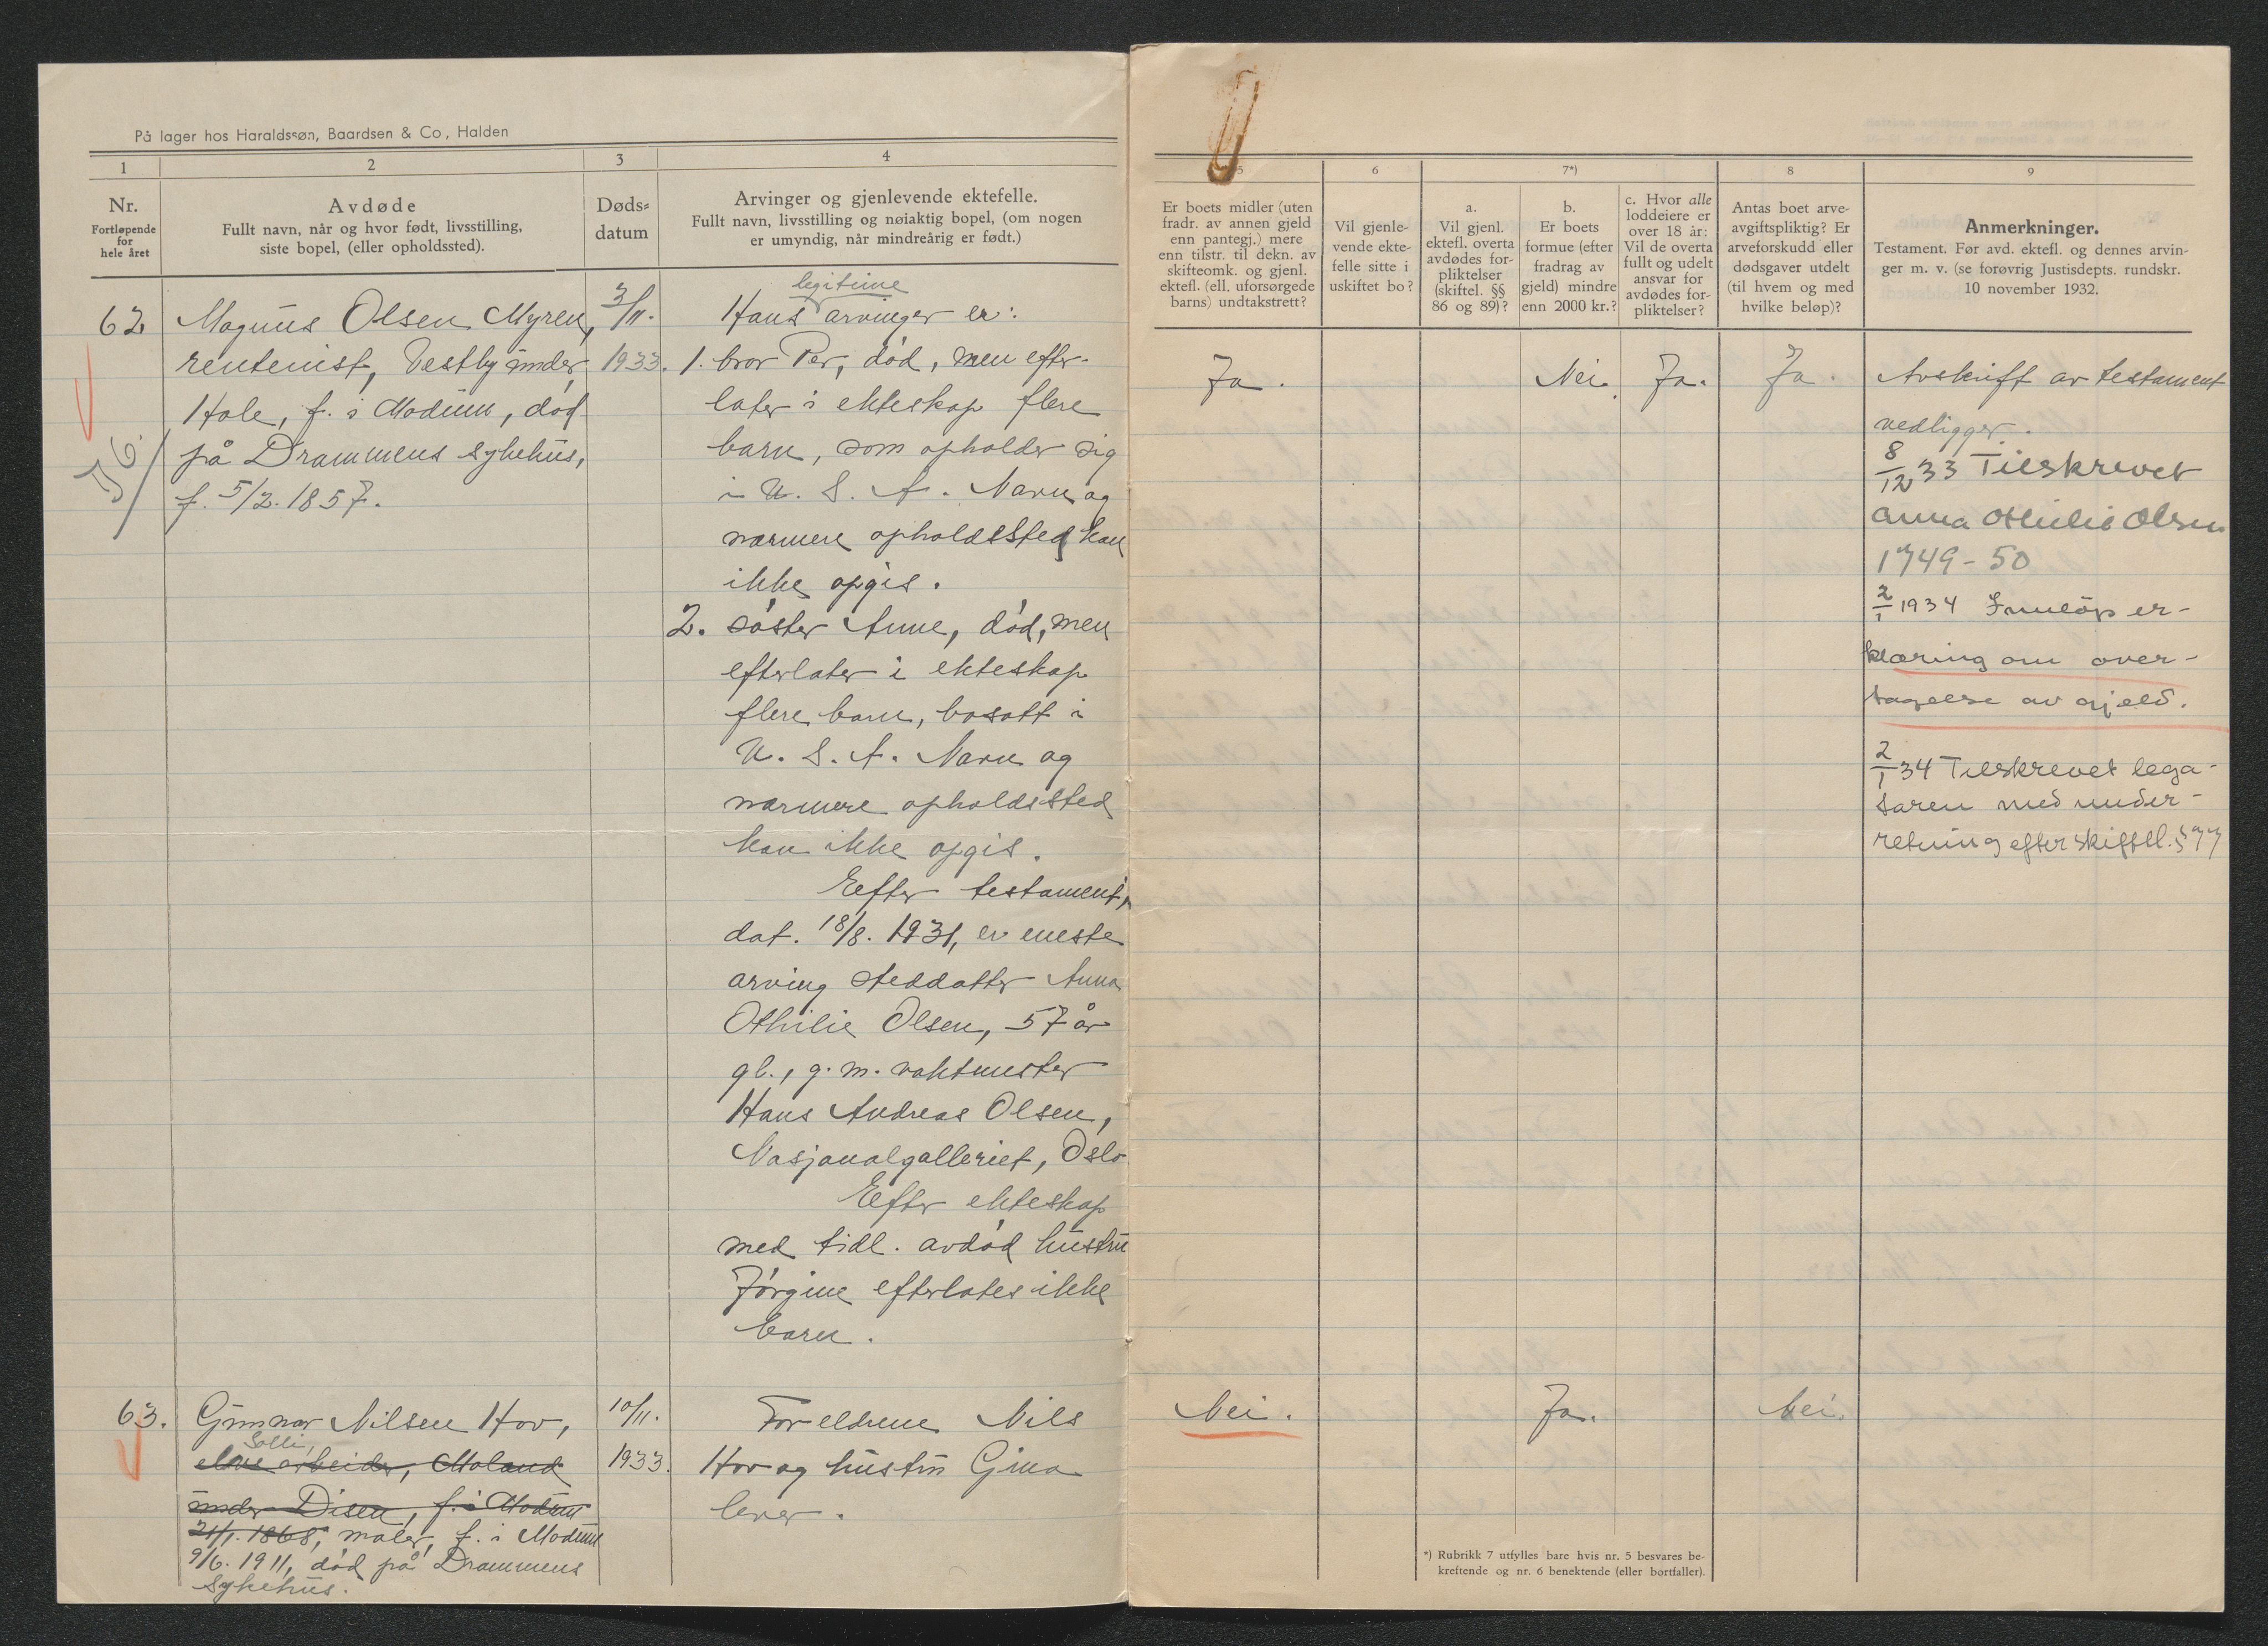 På lager hos Haraldssøn, Baardsen & Co, Halden
1
2
3
4
Nr.
Fortløpende
for
hele året
Avdøde
Fullt navn, når og hvor født, livsstilling,
siste bopel, (eller opholdssted).
Døds-
datum
Arvinger og gjenlevende ektefelle.
Fullt navn, livsstilling og nøiaktig bopel, (om nogen
er umyndig, når mindreårig er født.)
62
Magnus Olsen Myren,
rentenist, Vestby under
Hole, f. i Modum, død
på Drammens sykehus,
f. 5/2. 1857.
3/11.
1933.
legitime
Hans arvinger er:
1. bror Per, død, men efter-
later i ekteskap flere
barn, som opholder sig
i U. S. A. Navn og
nærmere opholdssted kan
ikke opgis.
2. søster Anne, død, men
efterlater i ekteskap
flere barn, bosatt i
U. S. A. Navn og
nærmere opholdssted
kan ikke opgis.
Efter testament,
dat. 18/8. 1931, er eneste
arving steddatter Anna
Othilie Olsen, 57 år
gl., g. m. vaktmester
Hans Andreas Olsen,
Nasjonalgalleriet, Oslo
Efter ekteskap
med tidl. avdød hustru
Jørgine efterlates ikke
barn.
63.
Gunnar Nilsen Hov,
Solli,
elveарbeider, Moland
under Disen, f. i Modum
21/1. 1868, maler, f. i Modum
9/6. 1911, død på Drammens
Sykehus.
10/11.
1933.
Foreldrene Nils
Hov og hustru Gina
lever.
5
6
7*)
8
9
Er boets midler (uten
fradr. av annen gjeld
enn pantegj.) mere
enn tilstr. til dekn. av
skifteomk. og gjenl.
ektefl. (ell. uforsørgede
barns) undtakstrett?
Vil gjenle-
vende ekte-
felle sitte i
uskiftet bo?
a.
Vil gjenl.
ektefl. overta
avdødes for-
pliktelser
(skiftel. §§
86 og 89)?
b.
Er boets
formue (efter
fradrag av
gjeld) mindre
enn 2000 kr.?
c. Hvor alle
loddeiere er
over 18 år:
Vil de overta
fullt og udelt
ansvar for
avdødes for-
pliktelser?
Antas boet arve-
avgiftspliktig? Er
arveforskudd eller
dødsgaver utdelt
(til hvem og med
hvilke beløp)?
Anmerkninger.
Testament. Før avd. ektefl. og dennes arvin-
ger m. v. (se forøvrig Justisdepts. rundskr.
10 november 1932.
Ja.
Nei.
Ja.
Ja.
Avskrift av testament
vedligger.
8/12 33 Tilskrevet
Anna Othilie Olsen
1749-50
2/1 1934 Innløp er-
klæring om over-
tagelse av gjeld.
2/1 34 Tilskrevet lega-
taren med under-
retning efter skiftel. § 77
Nei.
Ja.
Nei.
*) Rubrikk 7 utfylles bare hvis nr. 5 besvares be-
kreftende og nr. 6 benektende (eller bortfaller).